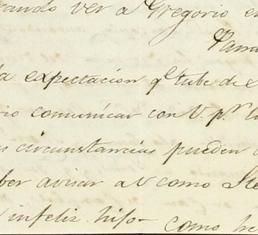 ver a Gregorio
a expectacion q.e tube de
comunicar con V. p.r
circunstancias pueden
ber avisar a V como
infeliz hijo como he